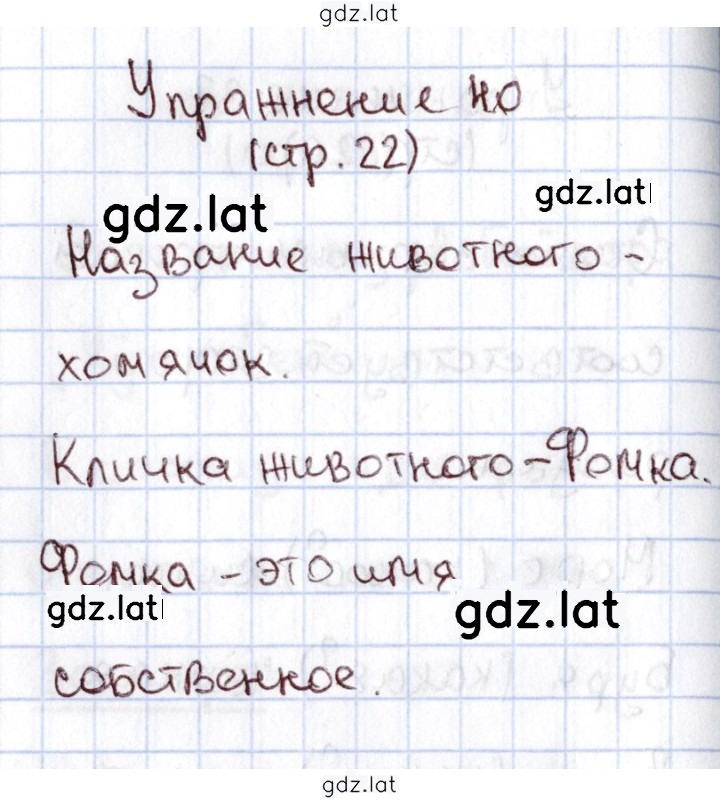 gdz.lat
Упражнение 40
(стр. 22)
gdz.lat
gdz.lat
Название животного -
хомячок.
Кличка животного - Фомка.
Фомка - это имя
gdz.lat
gdz.lat
собственное.
gdz.lat